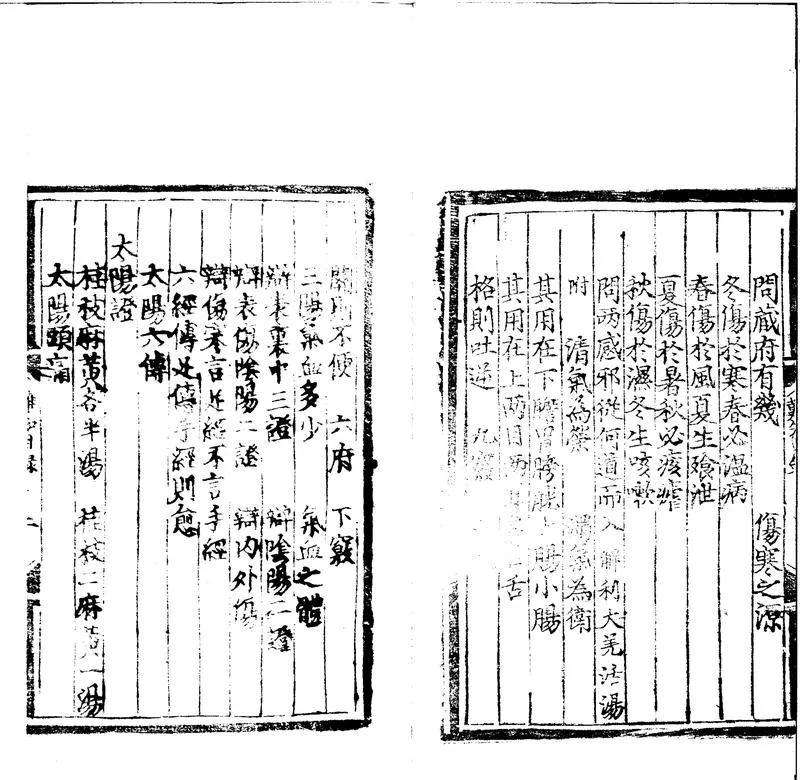 問藏府有幾 傷寒之源
冬傷於寒春必温病
春傷於風夏生飱泄
夏傷於暑秋必痎瘧
秋傷於濕冬生咳嗽
問兩感邪從何道而入 解利大羌活湯
附 清氣為榮 濁氣為衛
其用在下膽胃膀胱大腸小腸
其用在上兩目兩 舌
格則吐逆 九竅
關則不便 六府 下竅
三陽氣血多少 氣血之體
辯表裏中三證 辯陰陽二證
辯表傷陰陽二證 辯内外傷
辯傷寒言足經不言手經
六經傳足傳手經則愈
太陽六傳
太陽證
桂枝麻黄各半湯 桂枝二麻黄一湯
太陽頭痛